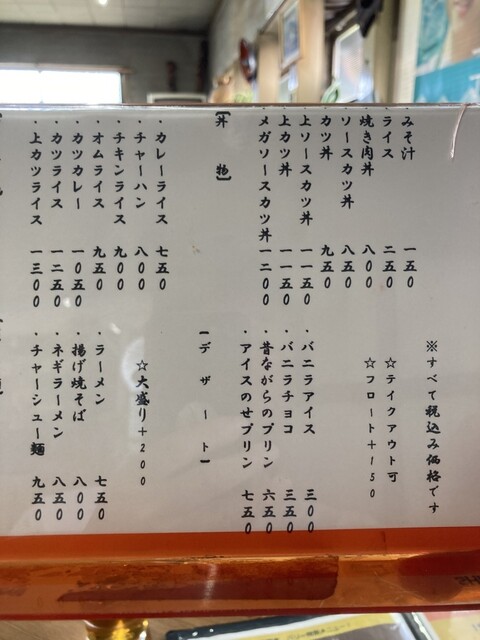 ・みそ汁 一五0
・ライス 二五0
・焼き肉丼 八00
・ソースカツ丼 八五0
・カツ丼 九五0
・上ソースカツ丼 一一五0
・上カツ丼 一一五0
・メガソースカツ丼 一二00
【丼 物】
・カレーライス 七五0
・チャーハン 八00
・チキンライス 九00
・オムライス 九五0
・カツカレー 一0五0
・カツライス 一二五0
・上カツライス 一三00
※すべて税込み価格です
☆テイクアウト可
☆フロート+150
・バニラアイス 三00
・バニラチョコ 三五0
・昔ながらのプリン 六五0
・アイスのせプリン 七五0
【デザート】
☆大盛り+200
・ラーメン 七五0
・揚げ焼そば 八00
・ネギラーメン 八五0
・チャーシュー麺 九五0